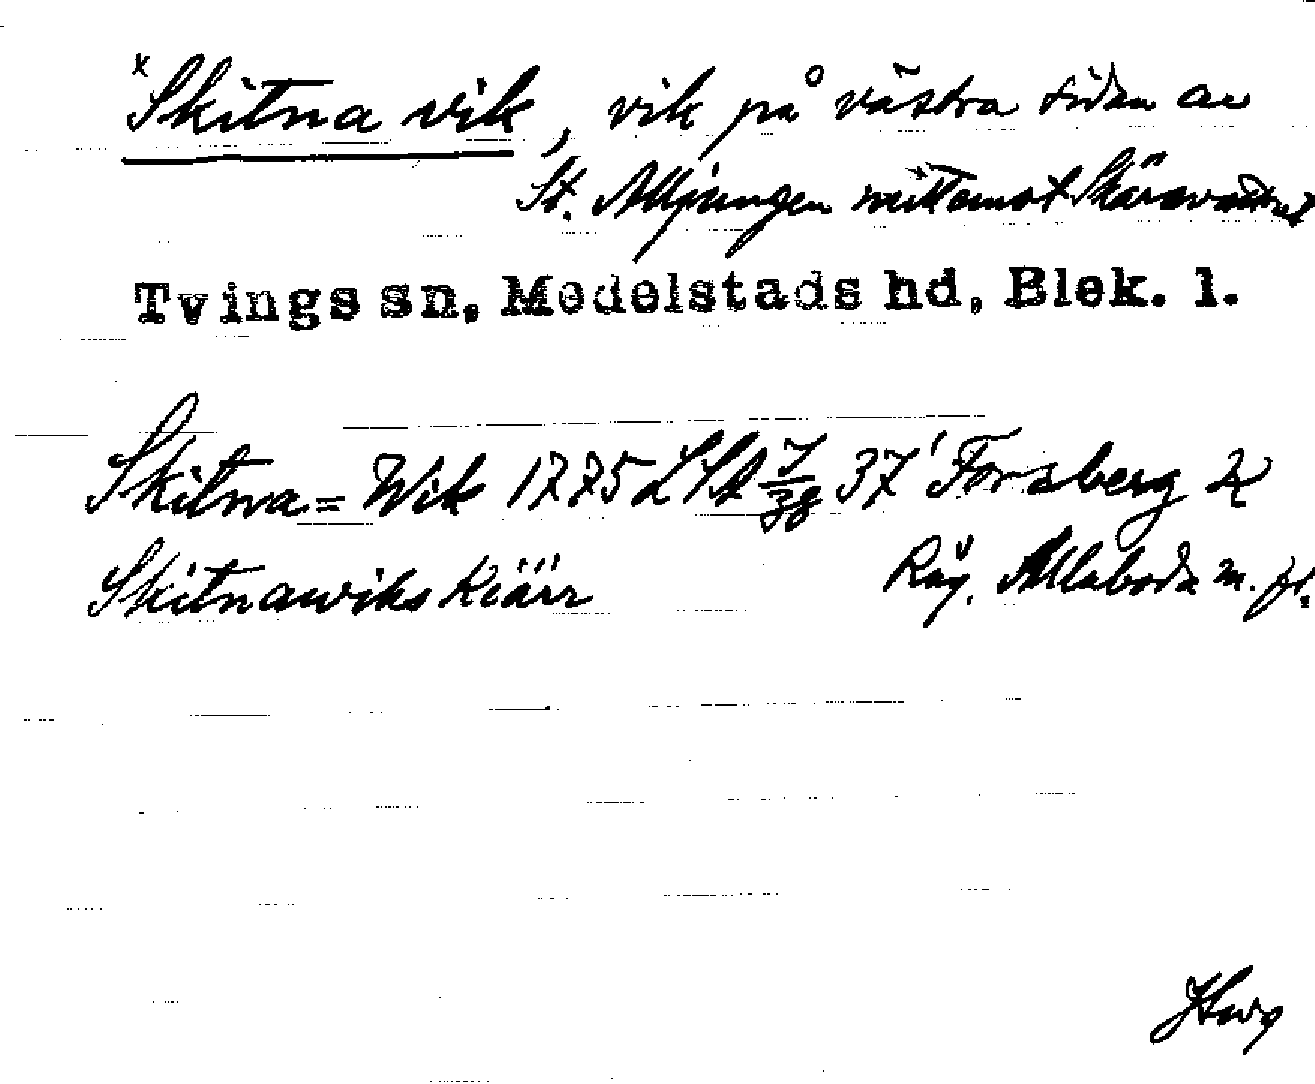 *Skitna vik, vik på västra sidan av
St. Alljungen mittemot Skäravattnet
Tvings sn, Medelstads hd, Blek. l.
Skitna=Wik 1775 LSA J/38 37' Forsberg
Skitnawiks Kiärr Räg. Allaboda m. fl.